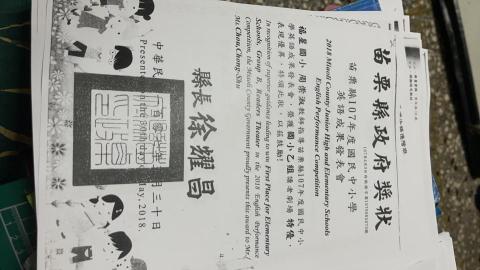 苗栗縣政府獎狀
苗栗縣107年度國民中小學
英語成果發表會
2018 Miaoli County Junior High and Elementary Schools
English Performance Competition
福星國小 周崇淑教師指導苗栗縣107年度國民中小
學英語成果發表會，榮獲國小乙組讀者劇場 特優，
表現優異，特頒此狀，以茲鼓勵！
In recognition of superior guidance leading to win First Place for Elementary
Schools, Group B, Readers Theater in the 2018 English Performance
Competition, the Miaoli County Government proudly presents this award to Mr./
Ms. Chou, Chong-Shu
縣長 徐耀昌
中華民 月三十日
Presented on the 30th day of May, 2018.